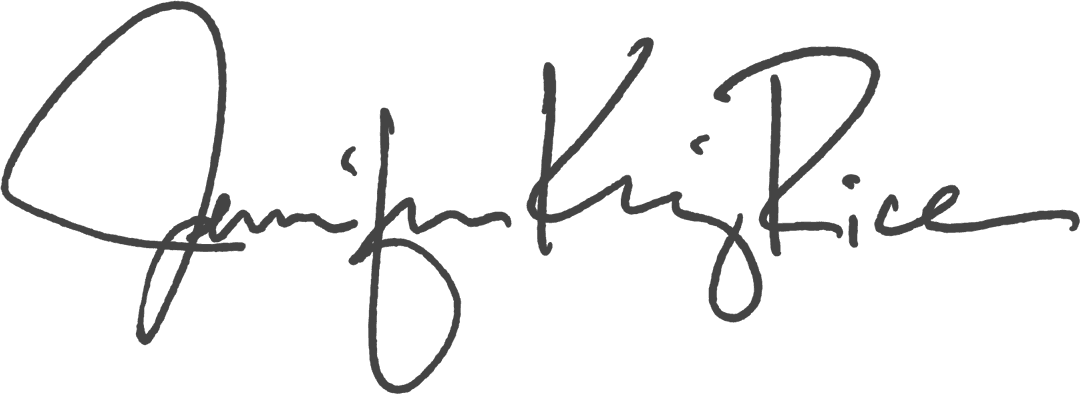 Jennifer King Rice